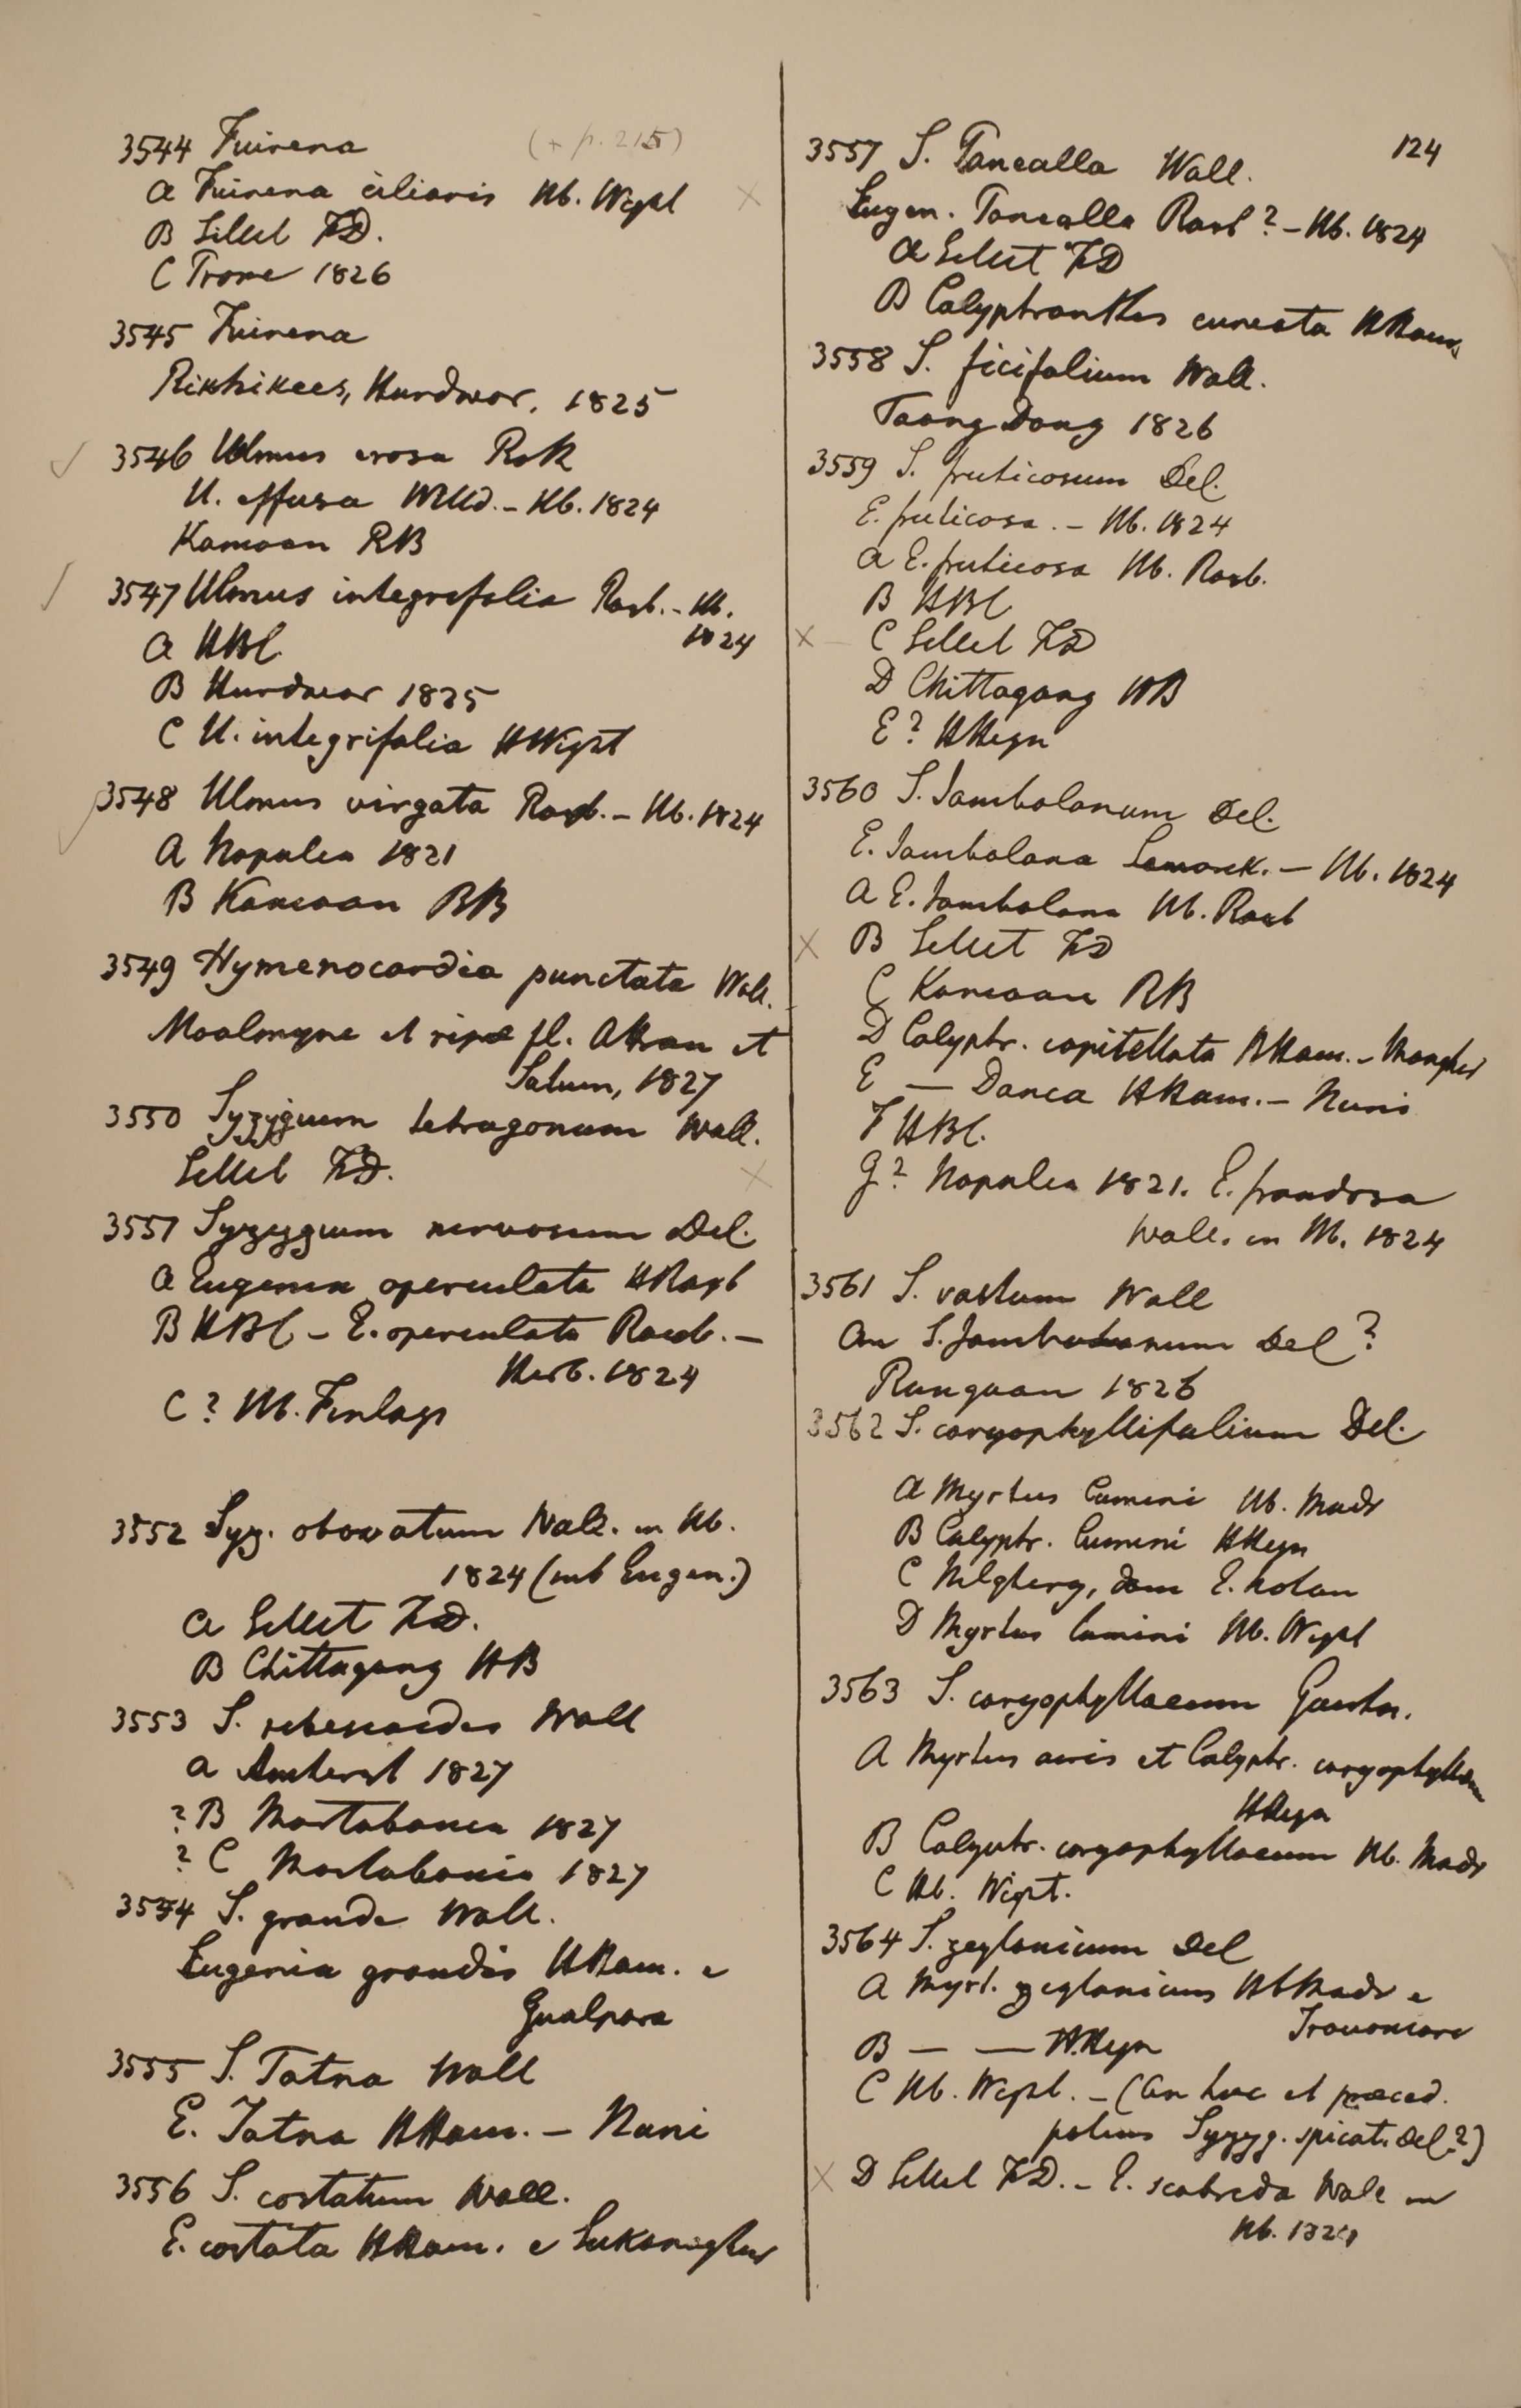 3544 Fuirena (+ p. 215)
a Fuirena ciliaris Hb. Wight
B Sillet FD.
C Prome 1826
3545 Fuirena
Rikhikees, Hurdwar, 1825
3546 Ulmus erosa Roth
U. effusa Willd. - Hb. 1824
Kamaon RB
3547 Ulmus integrifolia Roxb. - Hb.
1824
a HBC
B Hurdwar 1825
C U. integrifolia HWight
3548 Ulmus virgata Roxb. - Hb. 1824
A Napalia 1821
B Kamaon RB
3549 Hymenocardia punctata Wall.
Moalmyne et ripæ fl. Attran et
Salum, 1827
3550 Syzygium tetragonum Wall.
Sillet FD.
3551 Syzygium nervosum Del.
a Eugenia operculata HRoxb
B HBC - E. operculata Roxb. -
Herb. 1824
C ? Hb. Finlays
3552 Syz. obovatum Wall. in Hb.
1824 (sub Eugen.)
a Sillet FD.
B Chittagong HB
3553 S. Wall
a Amherst 1827
? B Martabania 1827
? C Martabania 1827
3554 S. grande Wall.
Eugenia grandis HHam. e
Gualpara
3555 S. Tatna Wall
E. Tatna HHam. - Nani
3556 S. costatum Wall.
E. costata HHam. e
124
3557 S. Wall.
Eugen. Roxb ? - Hb. 1824
a Sillet FD
B Calyptranthes cuneata HHam.
3558 S. ficifolium Wall.
Taong Dong 1826
3559 S. fruticosum Del.
E. fruticosa. - Hb. 1824
a E. fruticosa Hb. Roxb.
B HBC
C Sillet FD
D Chittagong HB
E ? HHeyn
3560 S. Jambolanum Del.
E. Jambolana Lamarck. - Hb. 1824
A E. Jambolana Hb. Roxb
B Sillet FD
C Kamaon RB
D Calyptr. capitellata HHam. - Mongher
E — Danca HHam. - Nani
F HBC.
G ? Napalia 1821. E. frondosa
Wall. in Hb. 1824
3561 S. vastum Wall
An S. Jambolanum Del ?
Rangoon 1826
3562 S. caryophyllifolium Del.
a Myrtus Cumini Hb. Madr
B Calyptr. Cumini HHeyn
C Nilgherry, dom E. Noton
D Myrtus Cumini Hb. Wight
3563 S. caryophyllaeum Gaertn.
A Myrtus acris et Calyptr. caryophyllaea
HHeyn
B Calyptr. caryophyllaeum Hb. Madr
C Hb. Wight.
3564 S. zeylanicum Del
A Myrt. zeylanicus HbMadr e
Travancore
B — — HHeyn
C Hb. Wight. - (An huc et præced.
potius Syzyg. spicat. Del ?)
D Sillet FD. - E. scabrida Wall in
Hb. 1824